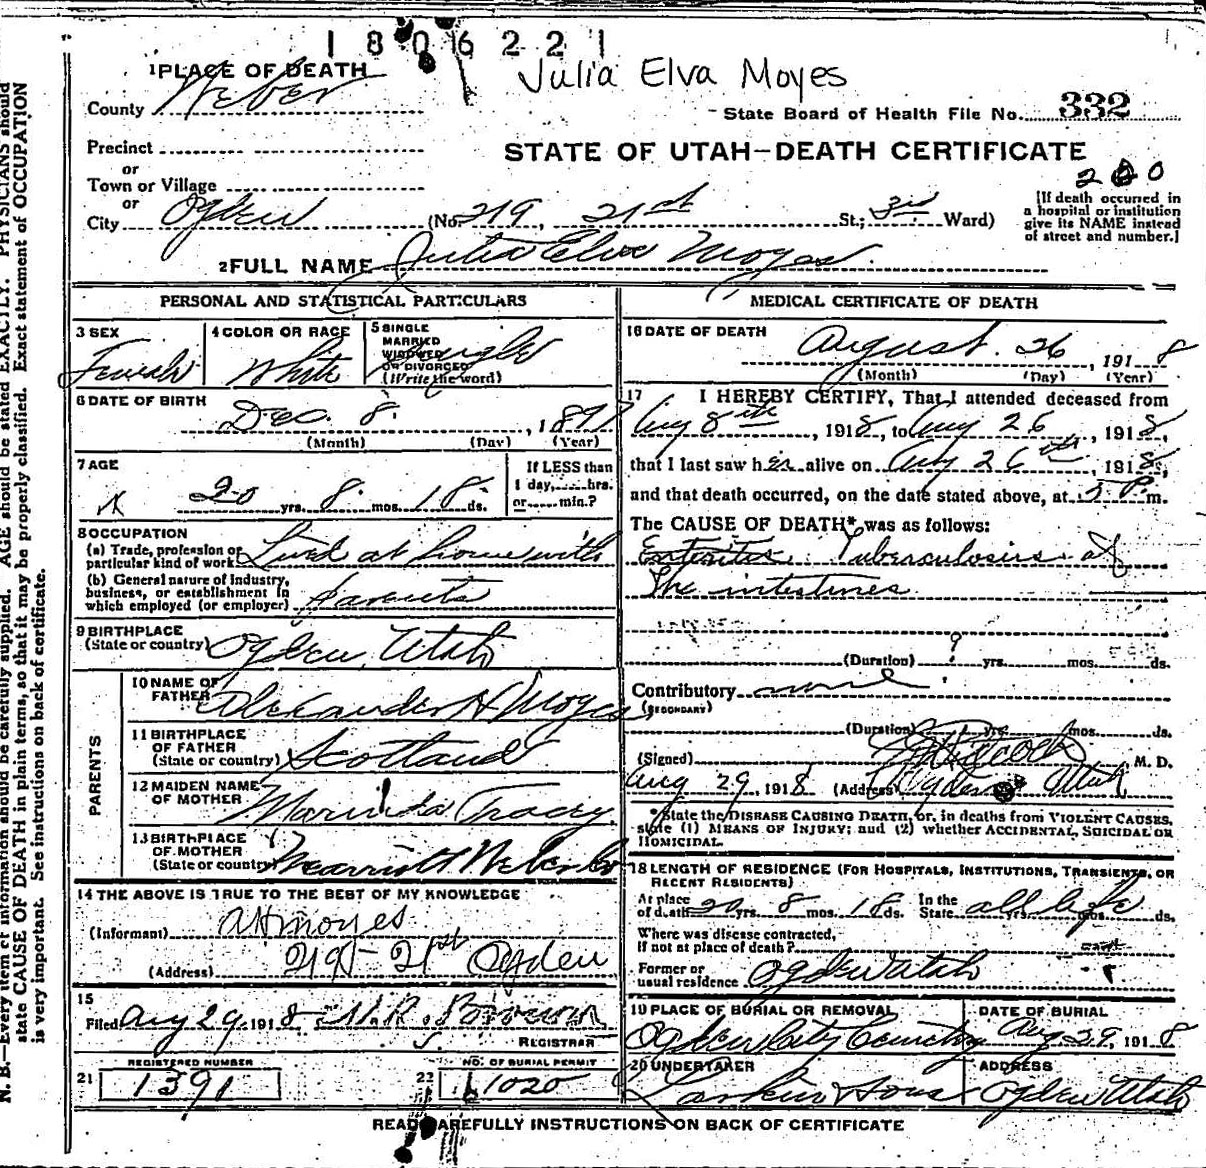 1806221
Julia Elva Moyes
1 PLACE OF DEATH
County Weber
State Board of Health File No. 332
Precinct
or
STATE OF UTAH—DEATH CERTIFICATE
Town or Village
or
200
City Ogden (No. 219, 21st St.; 3rd Ward)
[If death occurred in a hospital or institution give its NAME instead of street and number.]
2 FULL NAME Julia Elva Moyes
PERSONAL AND STATISTICAL PARTICULARS
3 SEX Female
4 COLOR OR RACE White
5 SINGLE MARRIED WIDOWED OR DIVORCED (Write the word) Single
6 DATE OF BIRTH
Dec. 8, 1897
(Month) (Day) (Year)
7 AGE
20 yrs. 8 mos. 18 ds.
If LESS than 1 day, hrs. or min.?
8 OCCUPATION
(a) Trade, profession or particular kind of work Lived at home with
(b) General nature of industry, business, or establishment in which employed (or employer) parents
9 BIRTHPLACE (State or country) Ogden, Utah
PARENTS
10 NAME OF FATHER Alexander H Moyes
11 BIRTHPLACE OF FATHER (State or country) Scotland
12 MAIDEN NAME OF MOTHER Marinda Tracy
13 BIRTHPLACE OF MOTHER (State or country) Marriott Weber Co
14 THE ABOVE IS TRUE TO THE BEST OF MY KNOWLEDGE
(Informant) AH Moyes
(Address) 219 - 21st Ogden
15
Filed Aug 29, 1918 Brown
REGISTRAR
REGISTERED NUMBER
21 1391
NO. OF BURIAL PERMIT
22 1020
MEDICAL CERTIFICATE OF DEATH
16 DATE OF DEATH
August 26, 1918
(Month) (Day) (Year)
17 I HEREBY CERTIFY, That I attended deceased from
Aug 8th, 1918, to Aug 26, 1918,
that I last saw her alive on Aug 26th, 1918,
and that death occurred, on the date stated above, at 5 P m.
The CAUSE OF DEATH* was as follows:
Enteritis Tuberculosis of
The intestines
(Duration) ? yrs. mos. ds.
Contributory none
(SECONDARY)
(Duration) yrs. mos. ds.
(Signed) M. D.
Aug 29, 1918 (Address) Ogden Utah
*State the DISEASE CAUSING DEATH, or, in deaths from VIOLENT CAUSES,
state (1) MEANS OF INJURY; and (2) whether ACCIDENTAL, SUICIDAL OR
HOMICIDAL.
18 LENGTH OF RESIDENCE (FOR HOSPITALS, INSTITUTIONS, TRANSIENTS, OR
RECENT RESIDENTS)
At place of death 20 yrs. 8 mos. 18 ds. In the State all life yrs. mos. ds.
Where was disease contracted,
if not at place of death?
Former or usual residence Ogden Utah
19 PLACE OF BURIAL OR REMOVAL
Ogden City Cemetery
DATE OF BURIAL
Aug 29, 1918
20 UNDERTAKER
Larkin & Sons
ADDRESS
Ogden Utah
READ CAREFULLY INSTRUCTIONS ON BACK OF CERTIFICATE
N. B.—Every item of information should be carefully supplied. AGE should be stated EXACTLY. PHYSICIANS should
state CAUSE OF DEATH in plain terms, so that it may be properly classified. Exact statement of OCCUPATION
is very important. See instructions on back of certificate.